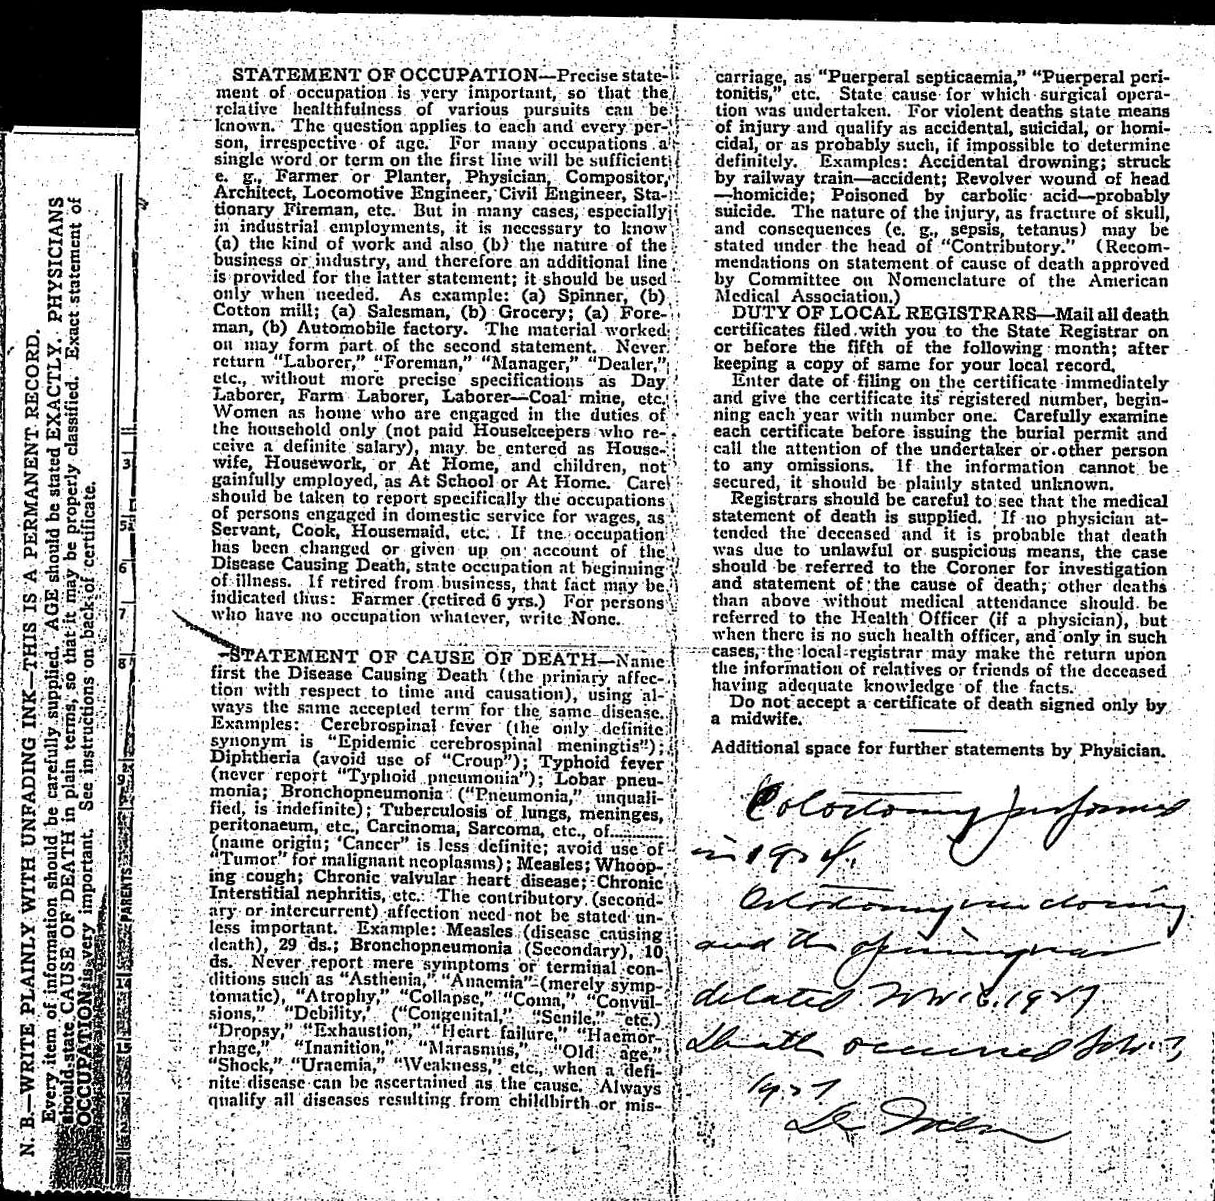 N. B.—WRITE PLAINLY WITH UNFADING INK—THIS IS A PERMANENT RECORD.
Every item of information should be carefully supplied. AGE should be stated EXACTLY. PHYSICIANS
should state CAUSE OF DEATH in plain terms, so that it may be properly classified. Exact statement of
OCCUPATION is very important. See instructions on back of certificate.
3
5
6
7
8
9
PARENTS
14
STATEMENT OF OCCUPATION—Precise state-
ment of occupation is very important, so that the
relative healthfulness of various pursuits can be
known. The question applies to each and every per-
son, irrespective of age. For many occupations a
single word or term on the first line will be sufficient
e. g., Farmer or Planter, Physician, Compositor,
Architect, Locomotive Engineer, Civil Engineer, Sta-
tionary Fireman, etc. But in many cases, especially
in industrial employments, it is necessary to know
(a) the kind of work and also (b) the nature of the
business or industry, and therefore an additional line
is provided for the latter statement; it should be used
only when needed. As example: (a) Spinner, (b)
Cotton mill; (a) Salesman, (b) Grocery; (a) Fore-
man, (b) Automobile factory. The material worked
on may form part of the second statement. Never
return "Laborer," "Foreman," "Manager," "Dealer,"
etc., without more precise specifications as Day
Laborer, Farm Laborer, Laborer—Coal mine, etc.
Women as home who are engaged in the duties of
the household only (not paid Housekeepers who re-
ceive a definite salary), may be entered as House-
wife, Housework, or At Home, and children, not
gainfully employed, as At School or At Home. Care
should be taken to report specifically the occupations
of persons engaged in domestic service for wages, as
Servant, Cook, Housemaid, etc. If the occupation
has been changed or given up on account of the
Disease Causing Death, state occupation at beginning
of illness. If retired from business, that fact may be
indicated thus: Farmer (retired 6 yrs.) For persons
who have no occupation whatever, write None.
STATEMENT OF CAUSE OF DEATH—Name
first the Disease Causing Death (the primary affec-
tion with respect to time and causation), using al-
ways the same accepted term for the same disease.
Examples: Cerebrospinal fever (the only definite
synonym is "Epidemic cerebrospinal meningtis");
Diphtheria (avoid use of "Croup"); Typhoid fever
(never report "Typhoid pneumonia"); Lobar pneu-
monia; Bronchopneumonia ("Pneumonia," unquali-
fied, is indefinite); Tuberculosis of lungs, meninges,
peritonaeum, etc., Carcinoma, Sarcoma, etc., of..........
(name origin; 'Cancer" is less definite; avoid use of
"Tumor" for malignant neoplasms); Measles; Whoop-
ing cough; Chronic valvular heart disease; Chronic
Interstitial nephritis, etc. The contributory (second-
ary or intercurrent) affection need not be stated un-
less important. Example: Measles (disease causing
death), 29 ds.; Bronchopneumonia (Secondary), 10
ds. Never report mere symptoms or terminal con-
ditions such as "Asthenia," "Anaemia" (merely symp-
tomatic), "Atrophy," "Collapse," "Coma," "Convul-
sions," "Debility," ("Congenital," "Senile," etc.)
"Dropsy," "Exhaustion," "Heart failure," "Haemor-
rhage," "Inanition," "Marasmus," "Old age,"
"Shock," "Uraemia," "Weakness," etc., when a defi-
nite disease can be ascertained as the cause. Always
qualify all diseases resulting from childbirth or mis-
carriage, as "Puerperal septicaemia," "Puerperal peri-
tonitis," etc. State cause for which surgical opera-
tion was undertaken. For violent deaths state means
of injury and qualify as accidental, suicidal, or homi-
cidal, or as probably such, if impossible to determine
definitely. Examples: Accidental drowning; struck
by railway train—accident; Revolver wound of head
—homicide; Poisoned by carbolic acid—probably
suicide. The nature of the injury, as fracture of skull,
and consequences (e. g., sepsis, tetanus) may be
stated under the head of "Contributory." (Recom-
mendations on statement of cause of death approved
by Committee on Nomenclature of the American
Medical Association.)
DUTY OF LOCAL REGISTRARS—Mail all death
certificates filed with you to the State Registrar on
or before the fifth of the following month; after
keeping a copy of same for your local record.
Enter date of filing on the certificate immediately
and give the certificate its registered number, begin-
ning each year with number one. Carefully examine
each certificate before issuing the burial permit and
call the attention of the undertaker or other person
to any omissions. If the information cannot be
secured, it should be plainly stated unknown.
Registrars should be careful to see that the medical
statement of death is supplied. If no physician at-
tended the deceased and it is probable that death
was due to unlawful or suspicious means, the case
should be referred to the Coroner for investigation
and statement of the cause of death; other deaths
than above without medical attendance should be
referred to the Health Officer (if a physician), but
when there is no such health officer, and only in such
cases, the local registrar may make the return upon
the information of relatives or friends of the deceased
having adequate knowledge of the facts.
Do not accept a certificate of death signed only by
a midwife.
Additional space for further statements by Physician.
Colostomy performed
in 1924.
Colostomy was closing
and the opening was
dilated Nov 1927
Death occurred Nov
1927
Dr